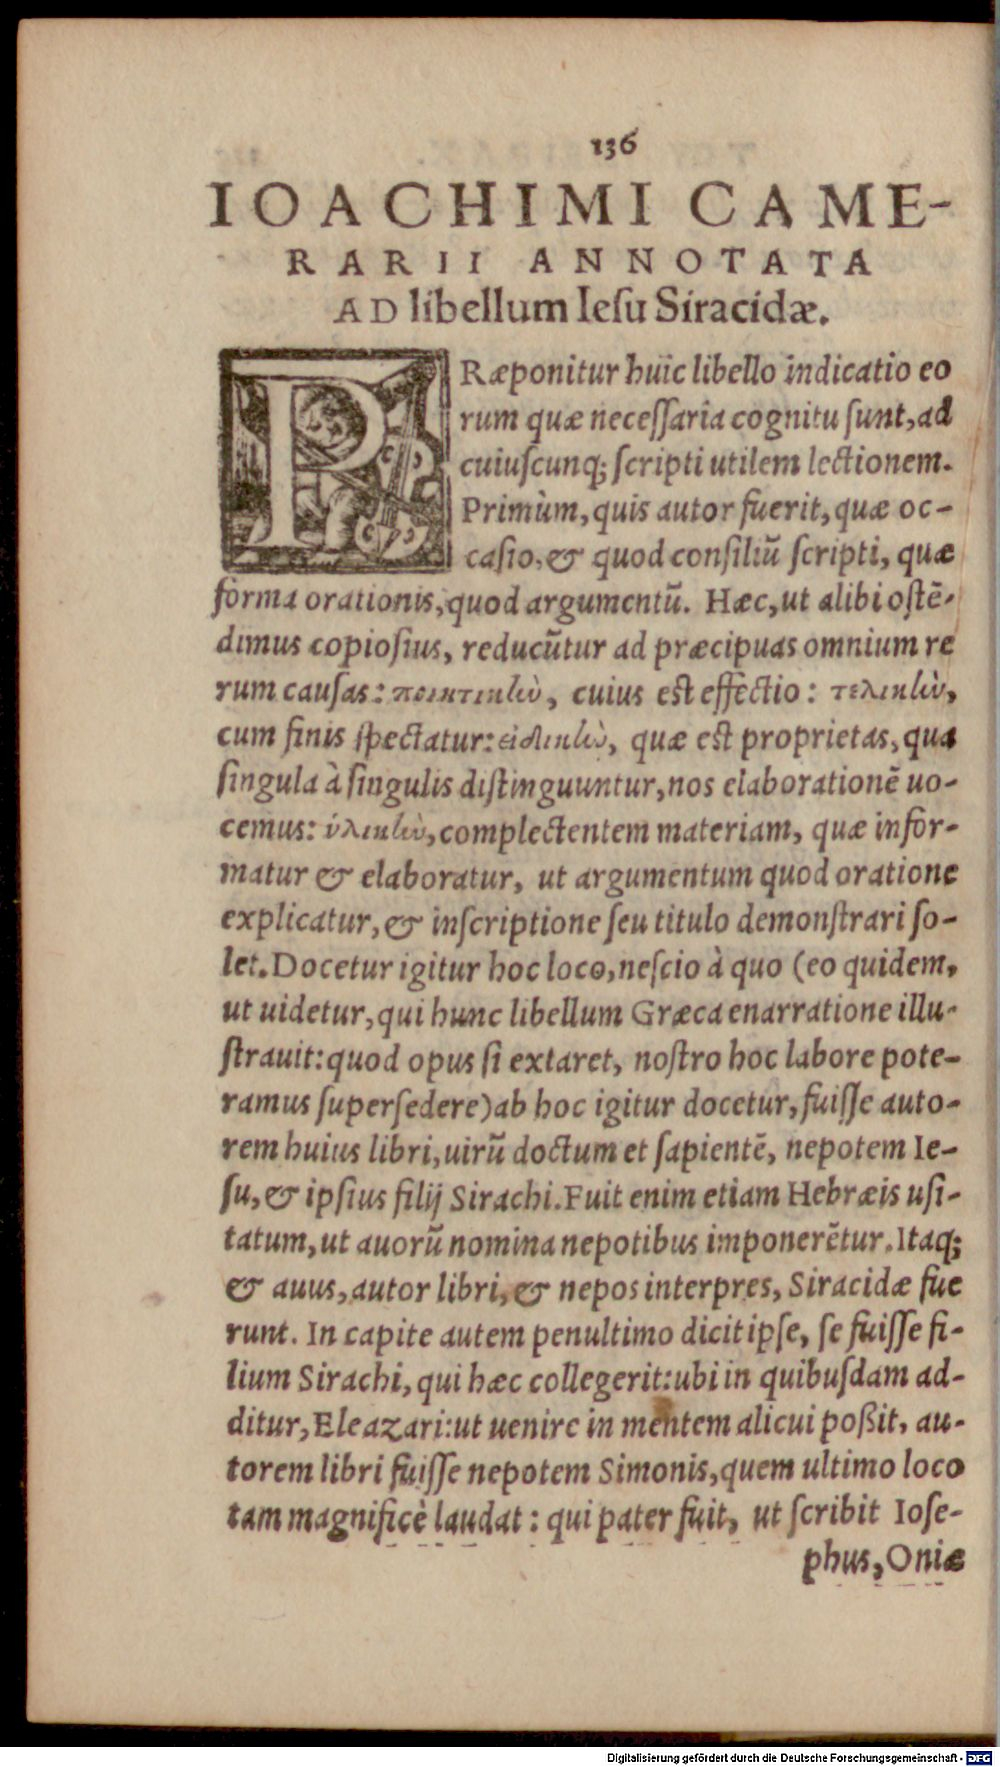 136
IOACHIMI CAME-
RARII ANNOTATA
AD libellum Ieſu Siracidæ.
PRæponitur huic libello indicatio eo
rum quæ neceſſaria cognitu ſunt, ad
cuiuſcunq; ſcripti utilem lectionem.
Primùm, quis autor fuerit, quæ oc-
caſio, & quod conſiliū ſcripti, quæ
forma orationis, quod argumentū. Hæc, ut alibi oſtē-
dimus copioſius, reducūtur ad præcipuas omnium re
rum cauſas: ποιητικὴν, cuius est effectio: τελικὴν,
cum finis ſpectatur: εἰδικὴν, quæ est proprietas, qua
ſingula à ſingulis diſtinguuntur, nos elaborationē uo-
cemus: ὑλικὴν, complectentem materiam, quæ infor-
matur & elaboratur, ut argumentum quod oratione
explicatur, & inſcriptione ſeu titulo demonſtrari ſo-
let. Docetur igitur hoc loco, neſcio à quo (eo quidem,
ut uidetur, qui hunc libellum Græca enarratione illu-
ſtrauit: quod opus ſi extaret, noſtro hoc labore pote-
ramus ſuperſedere) ab hoc igitur docetur, fuiſſe auto-
rem huius libri, uirū doctum et ſapientē, nepotem Ie-
ſu, & ipſius filij Sirachi. Fuit enim etiam Hebræis uſi-
tatum, ut auorū nomina nepotibus imponerētur. Itaq;
& auus, autor libri, & nepos interpres, Siracidæ fue
runt. In capite autem penultimo dicit ipſe, ſe fuiſſe fi-
lium Sirachi, qui hæc collegerit: ubi in quibuſdam ad-
ditur, Eleazari: ut uenire in mentem alicui poßit, au-
torem libri fuiſſe nepotem Simonis, quem ultimo loco
tam magnificè laudat: qui pater fuit, ut ſcribit Ioſe-
phus, Oniæ
Digitalisierung gefördert durch die Deutsche Forschungsgemeinschaft - DFG